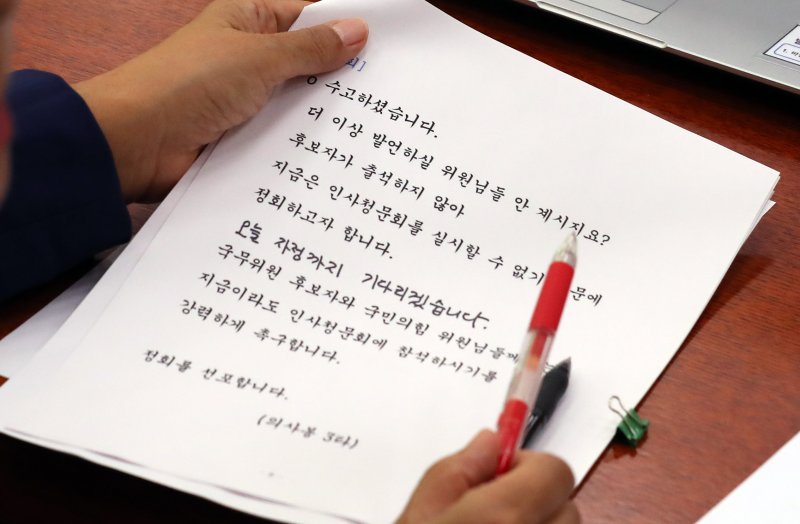 회]
수고하셨습니다.
더 이상 발언하실 위원님들 안 계시지요?
후보자가 출석하지 않아
지금은 인사청문회를 실시할 수 없기 문에
정회하고자 합니다.
오늘 자정까지 기다리겠습니다.
국무위원 후보자와 국민의힘 위원님들께
지금이라도 인사청문회에 참석하시기를
강력하게 촉구합니다.
정회를 선포합니다.
(의사봉 3타)